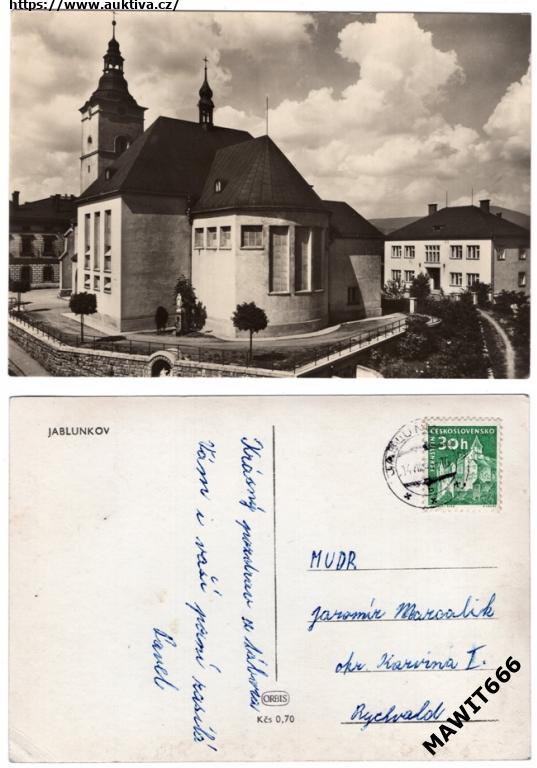 https://www.auktiva.cz/
JABLUNKOV
Krásný pozdrav z tábora
Vám i vaší paní zasílá
Pavel
ORBIS
Kčs 0,70
JABLUN
14
ČESKOSLOVENSKO
30h
PERNŠTEJN
MUDR
Jaromír Marcalik
okr. Karviná I.
Rychvald
MAWIT666